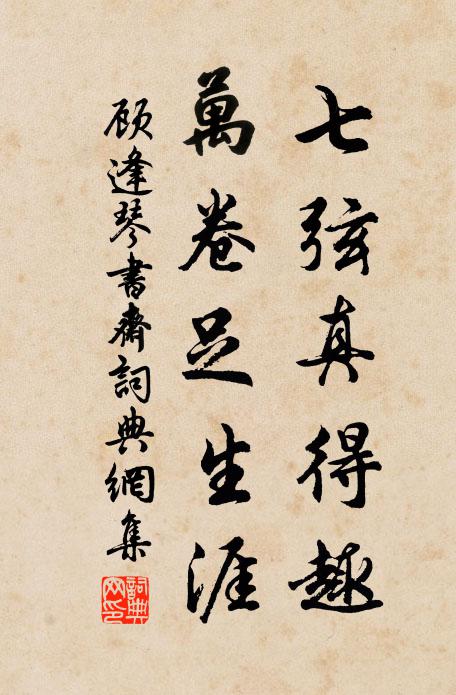 七弦真得趣
萬卷足生涯
顾逢琴書齋詞典網集
詞典
网印